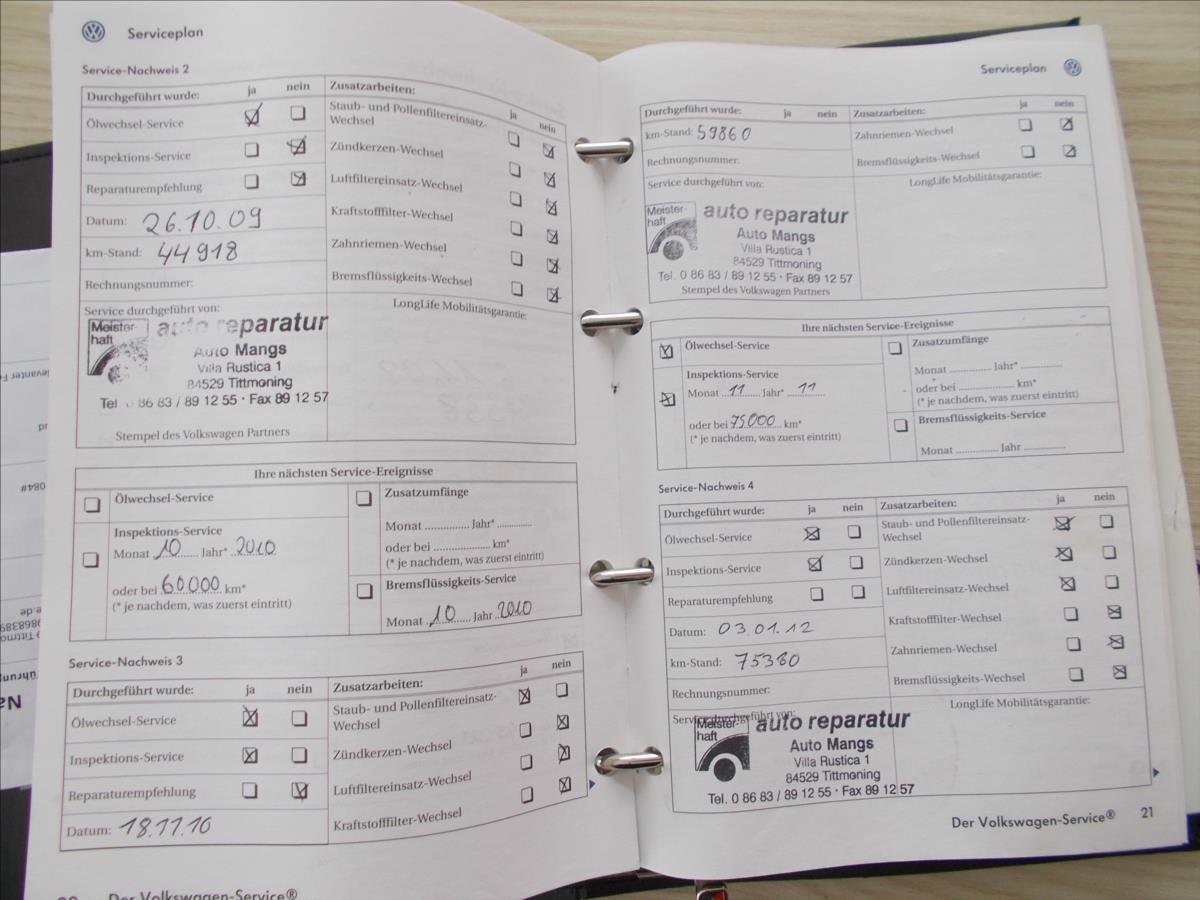 Serviceplan
Service-Nachweis 2
Durchgeführt wurde: ja nein
Ölwechsel-Service
Inspektions-Service
Reparaturempfehlung
Datum: 26.10.09
km-Stand: 44918
Rechnungsnummer:
Zusatzarbeiten: ja nein
Staub- und Pollenfiltereinsatz-
Wechsel
Zündkerzen-Wechsel
Luftfiltereinsatz-Wechsel
Kraftstofffilter-Wechsel
Zahnriemen-Wechsel
Bremsflüssigkeits-Wechsel
Service durchgeführt von:
Meister-
haft
auto reparatur
Auto Mangs
Villa Rustica 1
84529 Tittmoning
Tel 86 83 / 89 12 55 · Fax 89 12 57
Stempel des Volkswagen Partners
LongLife Mobilitätsgarantie:
Ihre nächsten Service-Ereignisse
Ölwechsel-Service
Inspektions-Service
Monat 10 Jahr* 2010
oder bei 60000 km*
(* je nachdem, was zuerst eintritt)
Zusatzumfänge
Monat ............... Jahr* ............
oder bei .................... km*
(* je nachdem, was zuerst eintritt)
Bremsflüssigkeits-Service
Monat 10 Jahr 2010
Service-Nachweis 3
Durchgeführt wurde: ja nein
Ölwechsel-Service
Inspektions-Service
Reparaturempfehlung
Datum: 18.11.10
Zusatzarbeiten: ja nein
Staub- und Pollenfiltereinsatz-
Wechsel
Zündkerzen-Wechsel
Luftfiltereinsatz-Wechsel
Kraftstofffilter-Wechsel
Der Volkswagen-Service®
Serviceplan
Durchgeführt wurde: ja nein
km-Stand: 59860
Rechnungsnummer:
Zusatzarbeiten: ja nein
Zahnriemen-Wechsel
Bremsflüssigkeits-Wechsel
Service durchgeführt von:
Meister-
haft
auto reparatur
Auto Mangs
Villa Rustica 1
84529 Tittmoning
Tel. 0 86 83 / 89 12 55 · Fax 89 12 57
Stempel des Volkswagen Partners
LongLife Mobilitätsgarantie:
Ihre nächsten Service-Ereignisse
Ölwechsel-Service
Inspektions-Service
Monat 11 Jahr* 11
oder bei 75000 km*
(* je nachdem, was zuerst eintritt)
Zusatzumfänge
Monat ............... Jahr* ............
oder bei .................... km*
(* je nachdem, was zuerst eintritt)
Bremsflüssigkeits-Service
Monat ............... Jahr ............
Service-Nachweis 4
Durchgeführt wurde: ja nein
Ölwechsel-Service
Inspektions-Service
Reparaturempfehlung
Datum: 03.01.12
km-Stand: 75380
Rechnungsnummer:
Zusatzarbeiten: ja nein
Staub- und Pollenfiltereinsatz-
Wechsel
Zündkerzen-Wechsel
Luftfiltereinsatz-Wechsel
Kraftstofffilter-Wechsel
Zahnriemen-Wechsel
Bremsflüssigkeits-Wechsel
Service durchgeführt von:
Meister-
haft
auto reparatur
Auto Mangs
Villa Rustica 1
84529 Tittmoning
Tel. 0 86 83 / 89 12 55 · Fax 89 12 57
LongLife Mobilitätsgarantie:
Der Volkswagen-Service® 21